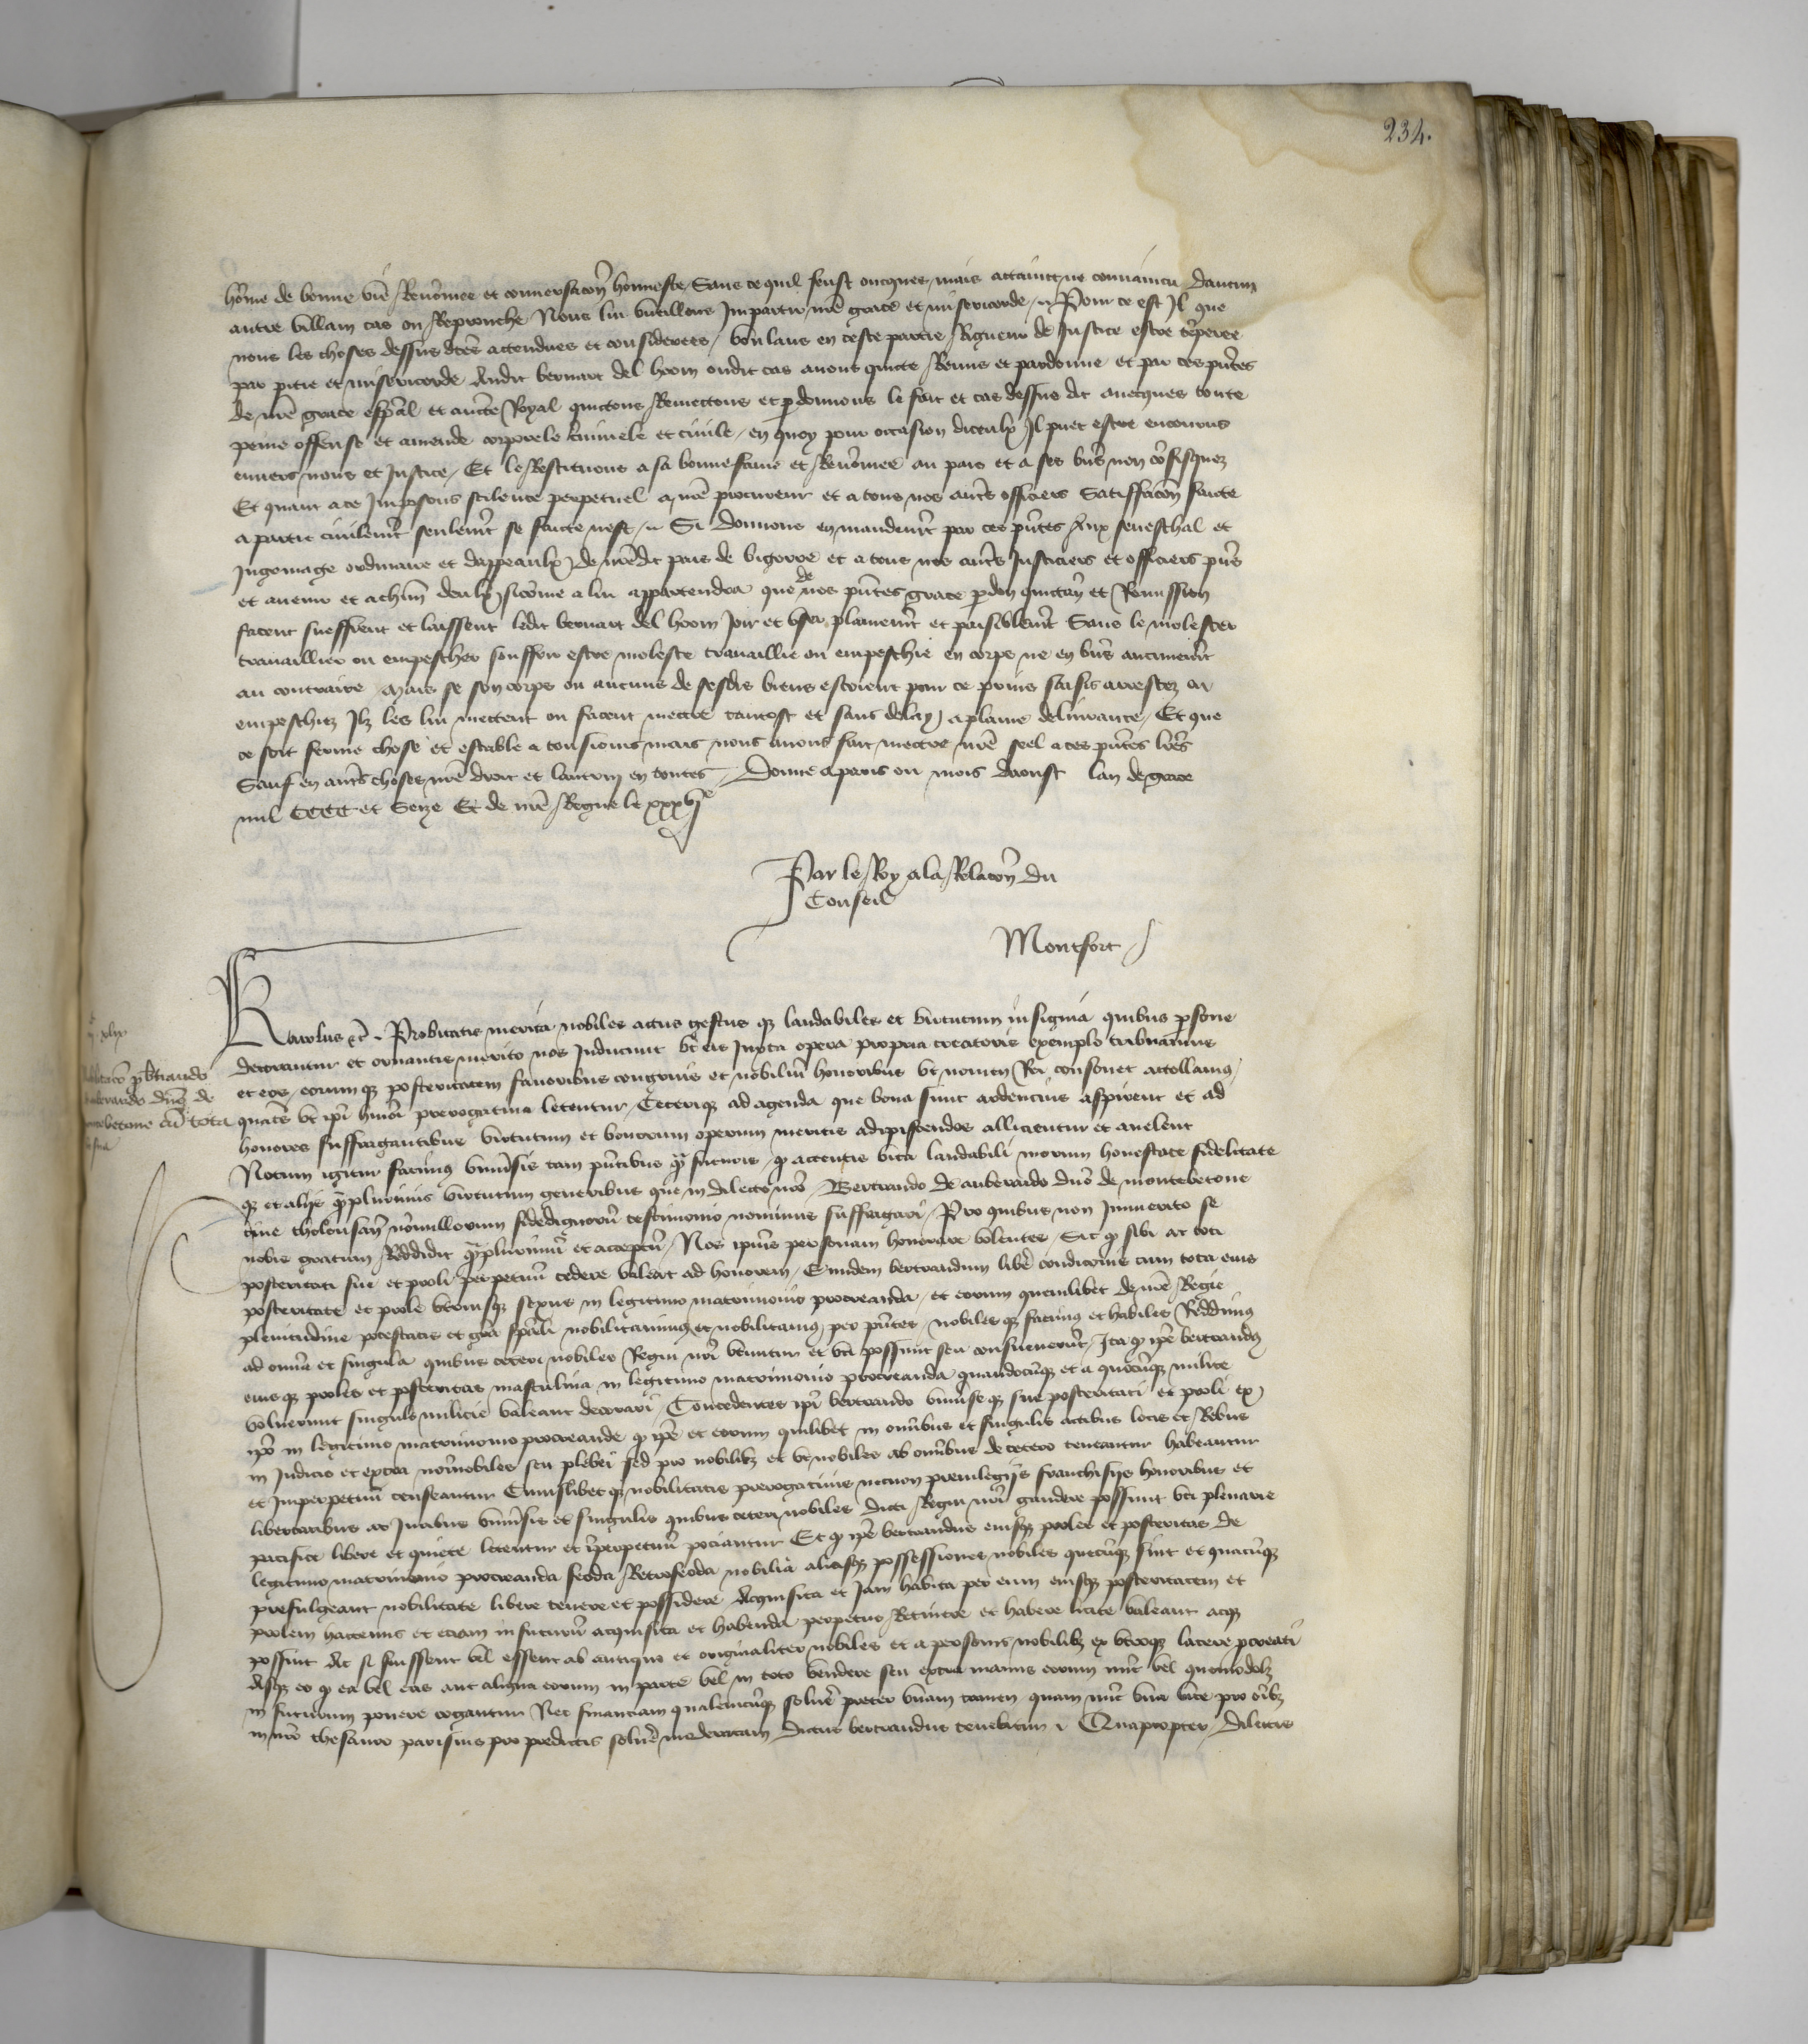 234.
home de bonne vie Renommee et conversacon honneste Sans ce quil feust oncques mais attaint ne convaincu daucun
autre villain cas ou Reprouche Nous lui vueillons Impartir nre grace et misericorde / Pour ce est Il que
nous les choses dessus dces attendues et considerees / voulans en ceste partie Rigueur de Justice estre temperee
par pitie et misericorde Audit bernart del hoom oudit cas avons quicte Remis et pardonne et par ces pntes
de nre grace especal et aucte Royal quictons Remettons et pdonnons le fait et cas dessus dit avecques toute
peine offense et amende corporele criminele et civile / en quoy pour occasion diceulx Il puet estre encouru
envers nous et Justice / Et le Restituons a sa bonne fame et Renommee au pais et a ses biens non confisquez
Et quant a ce Imposons scilence perpetuel a nre procureur et a tous nos autres officiers Satisfacion faicte
a partie civilemt seulemt se faicte nest / Si donnons en mandemt par ces pntes Aux seneschal et
Jugemage ordinaire et dappeaulx de nredit pais de bigorre et a tous nos autres Justiciers et officiers pns
et avenir et a chun deulx sicome a lui appartendra que de nos pntes grace pdon quictance et Remission
facent sueffrent et laissent ledit bernart del hoom Joir et user plainemt et paisiblemt Sans le molester
travaillier ou empescher souffrir estre moleste travaillie ou empeschie en corps ne en biens aucunemt
au contraire / Mais se son corps ou aucuns de sesdis biens estoient pour ce prins saisis arrestez ou
empeschiez Ilz les lui mettent ou facent mettre tantost et sans delay a plaine delivrance / Et que
ce soit ferme chose et estable a tousjours mais nous avons fait mectre nre seel a ces pntes lres
Sauf en autres choses nre droit et lautruy en toutes / Donne a paris ou mois daoust lan de grace
mil CCCC et Seize Et de nre Regne le xxxvie
Par le Roy a la Relacon du
Conseil
Montfort
Karolus etc Probitatis merita nobiles actus gestus q laudabiles et virtutum insignia quibus psone
decorantur et ornantur merito nos Inducunt ut eis Juxta opera propria creatoris exemplo tribuamus
et eos / eorum q posteritatem favoribus congruis et nobilium honoribus ut nomen Rei consonet attollamus
quates ut ipi hmoi prerogativa letentur / Ceterique ad agenda que bona sunt ardencius aspirent et ad
honores suffragantibus virtutum et bonorum operum meritis adipiscendos alliciantur et anelent
Notum igitur facimus universis tam pntibus q futuris / q attentis vita laudabili morum honestate fidelitate
q et aliis qplurimis virtutum generibus que in dilecto nro Bertrando de auberardo dno de montebetone
sine tholousan nonnullorum fidedignoru testimonio novimus suffragari / Pro quibus non Immerito se
nobis gratum Reddidit qplurimum et acceptu / Nos ipius personam honorare volentes / Sic q sibi ac toti
posteritati sue et proli perpetuu cedere valeat ad honorem / Eundem bertrandum libe condicionis cum tota eius
posteritate et prole utriusq sexus in legitimo matrimonio procreanda / et eorum quemlibet de nre Regie
plenitudine potestatis et gra spali nobilitavimus et nobilitamus per pntes / nobiles q facimus et habiles Reddimus
ad omia et singula quibus ceteri nobiles Regni nri utuntur et uti possunt seu consueverunt / Ita q ipe bertrandus
eius q proles et posteritas masculina in legitimo matrimonio procreanda quandocuq et a quocuq milite
voluerint cingulo milicie valeant decorari / Concedentes ipi bertrando universe q sue posteritati et proli ex
ipo in legitimo matrimonio procreande q ipe et eorum quilibet in omibus et singulis actibus locis et Rebus
in Judicio et extra nonnobiles seu plebei sed pro nobilibus et ut nobiles ab omibus de cetero teneantur habeantur
et Imperpetuu censeantur Cuiuslibet q nobilitatis prerogativis necnon previlegiis franchisiis honoribus et
libertatibus ac Juribus universis et singulis quibus ceteri nobiles dicti Regni nri gaudere possunt uti plenarie
pacifice libere et quiete letentur et imperpetuu pociantur Et q ipe bertrandus eiusq proles et posteritas de
legitimo matrimonio procreanda feoda Retrofeoda nobilia aliasq possessiones nobiles quecuq sint et quacuq
prefulgeant nobilitate libere tenere et possidere Acquisita et Jam habita per eum eiusq posteritatem et
prolem hactenus et eciam in futuru acquisita et habenda perpetuo Retinere et habere licite valeant acq
possint Ac si fuissent vel essent ab antiquo et originaliter nobiles et a personis nobilibus ex utroq latere pcreati
Absq eo q ea vel eas aut aliqua eorum in parte vel in toto vendere seu extra manus eorum nunc vel quomodolz
in futurum ponere cogantur Nec financiam qualemcuq solve preter unam tantum quam nunc una vice pro oibus
in nro thesauro parisius pro predictis solve moderatam dictus bertrandus tenebitur / Quapropter dilectis
xlix
Nobilitaco p btrando
auberardo dno de
montebetone cu tota